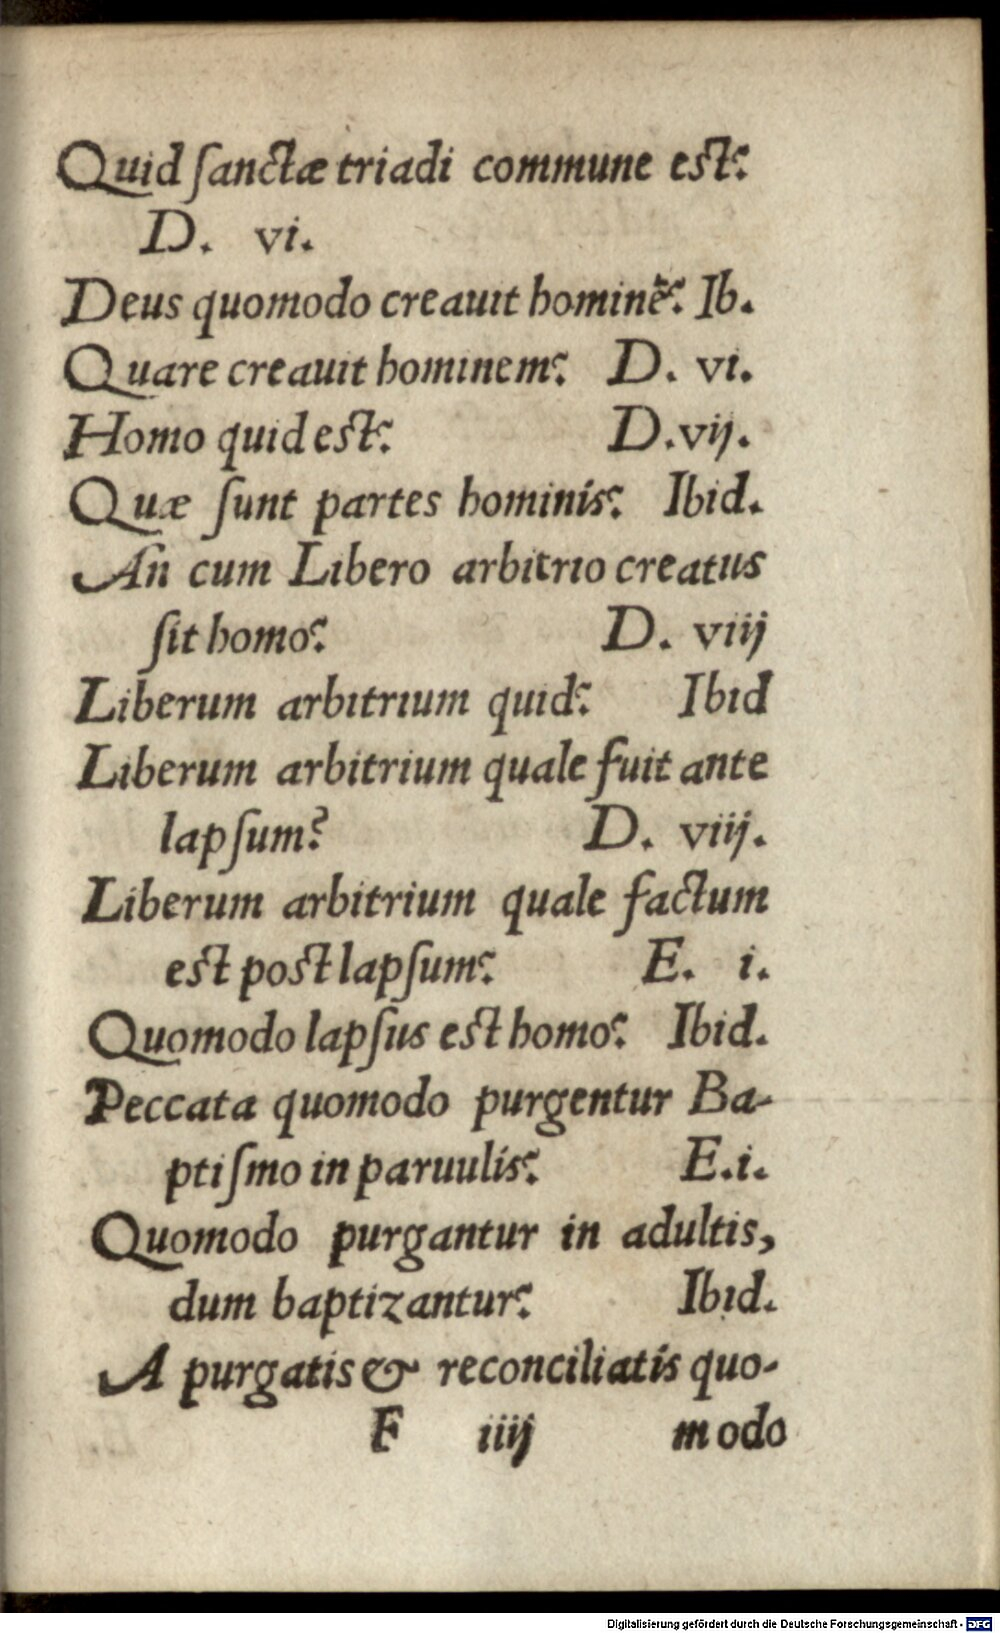 Quid ſanctæ triadi commune est?
D. vi.
Deus quomodo creauit hominē? Ib.
Quare creauit hominem? D. vi.
Homo quid est? D.vij.
Quæ ſunt partes hominis? Ibid.
An cum Libero arbitrio creatus
ſit homo? D. viij
Liberum arbitrium quid? Ibid
Liberum arbitrium quale fuit ante
lapſum? D. viij.
Liberum arbitrium quale factum
est post lapſum? E. i.
Quomodo lapſus est homo? Ibid.
Peccata quomodo purgentur Ba-
ptiſmo in paruulis? E.i.
Quomodo purgantur in adultis,
dum baptizantur? Ibid.
A purgatis & reconciliatis quo-
F iiij modo
Digitalisierung gefördert durch die Deutsche Forschungsgemeinschaft - DFG